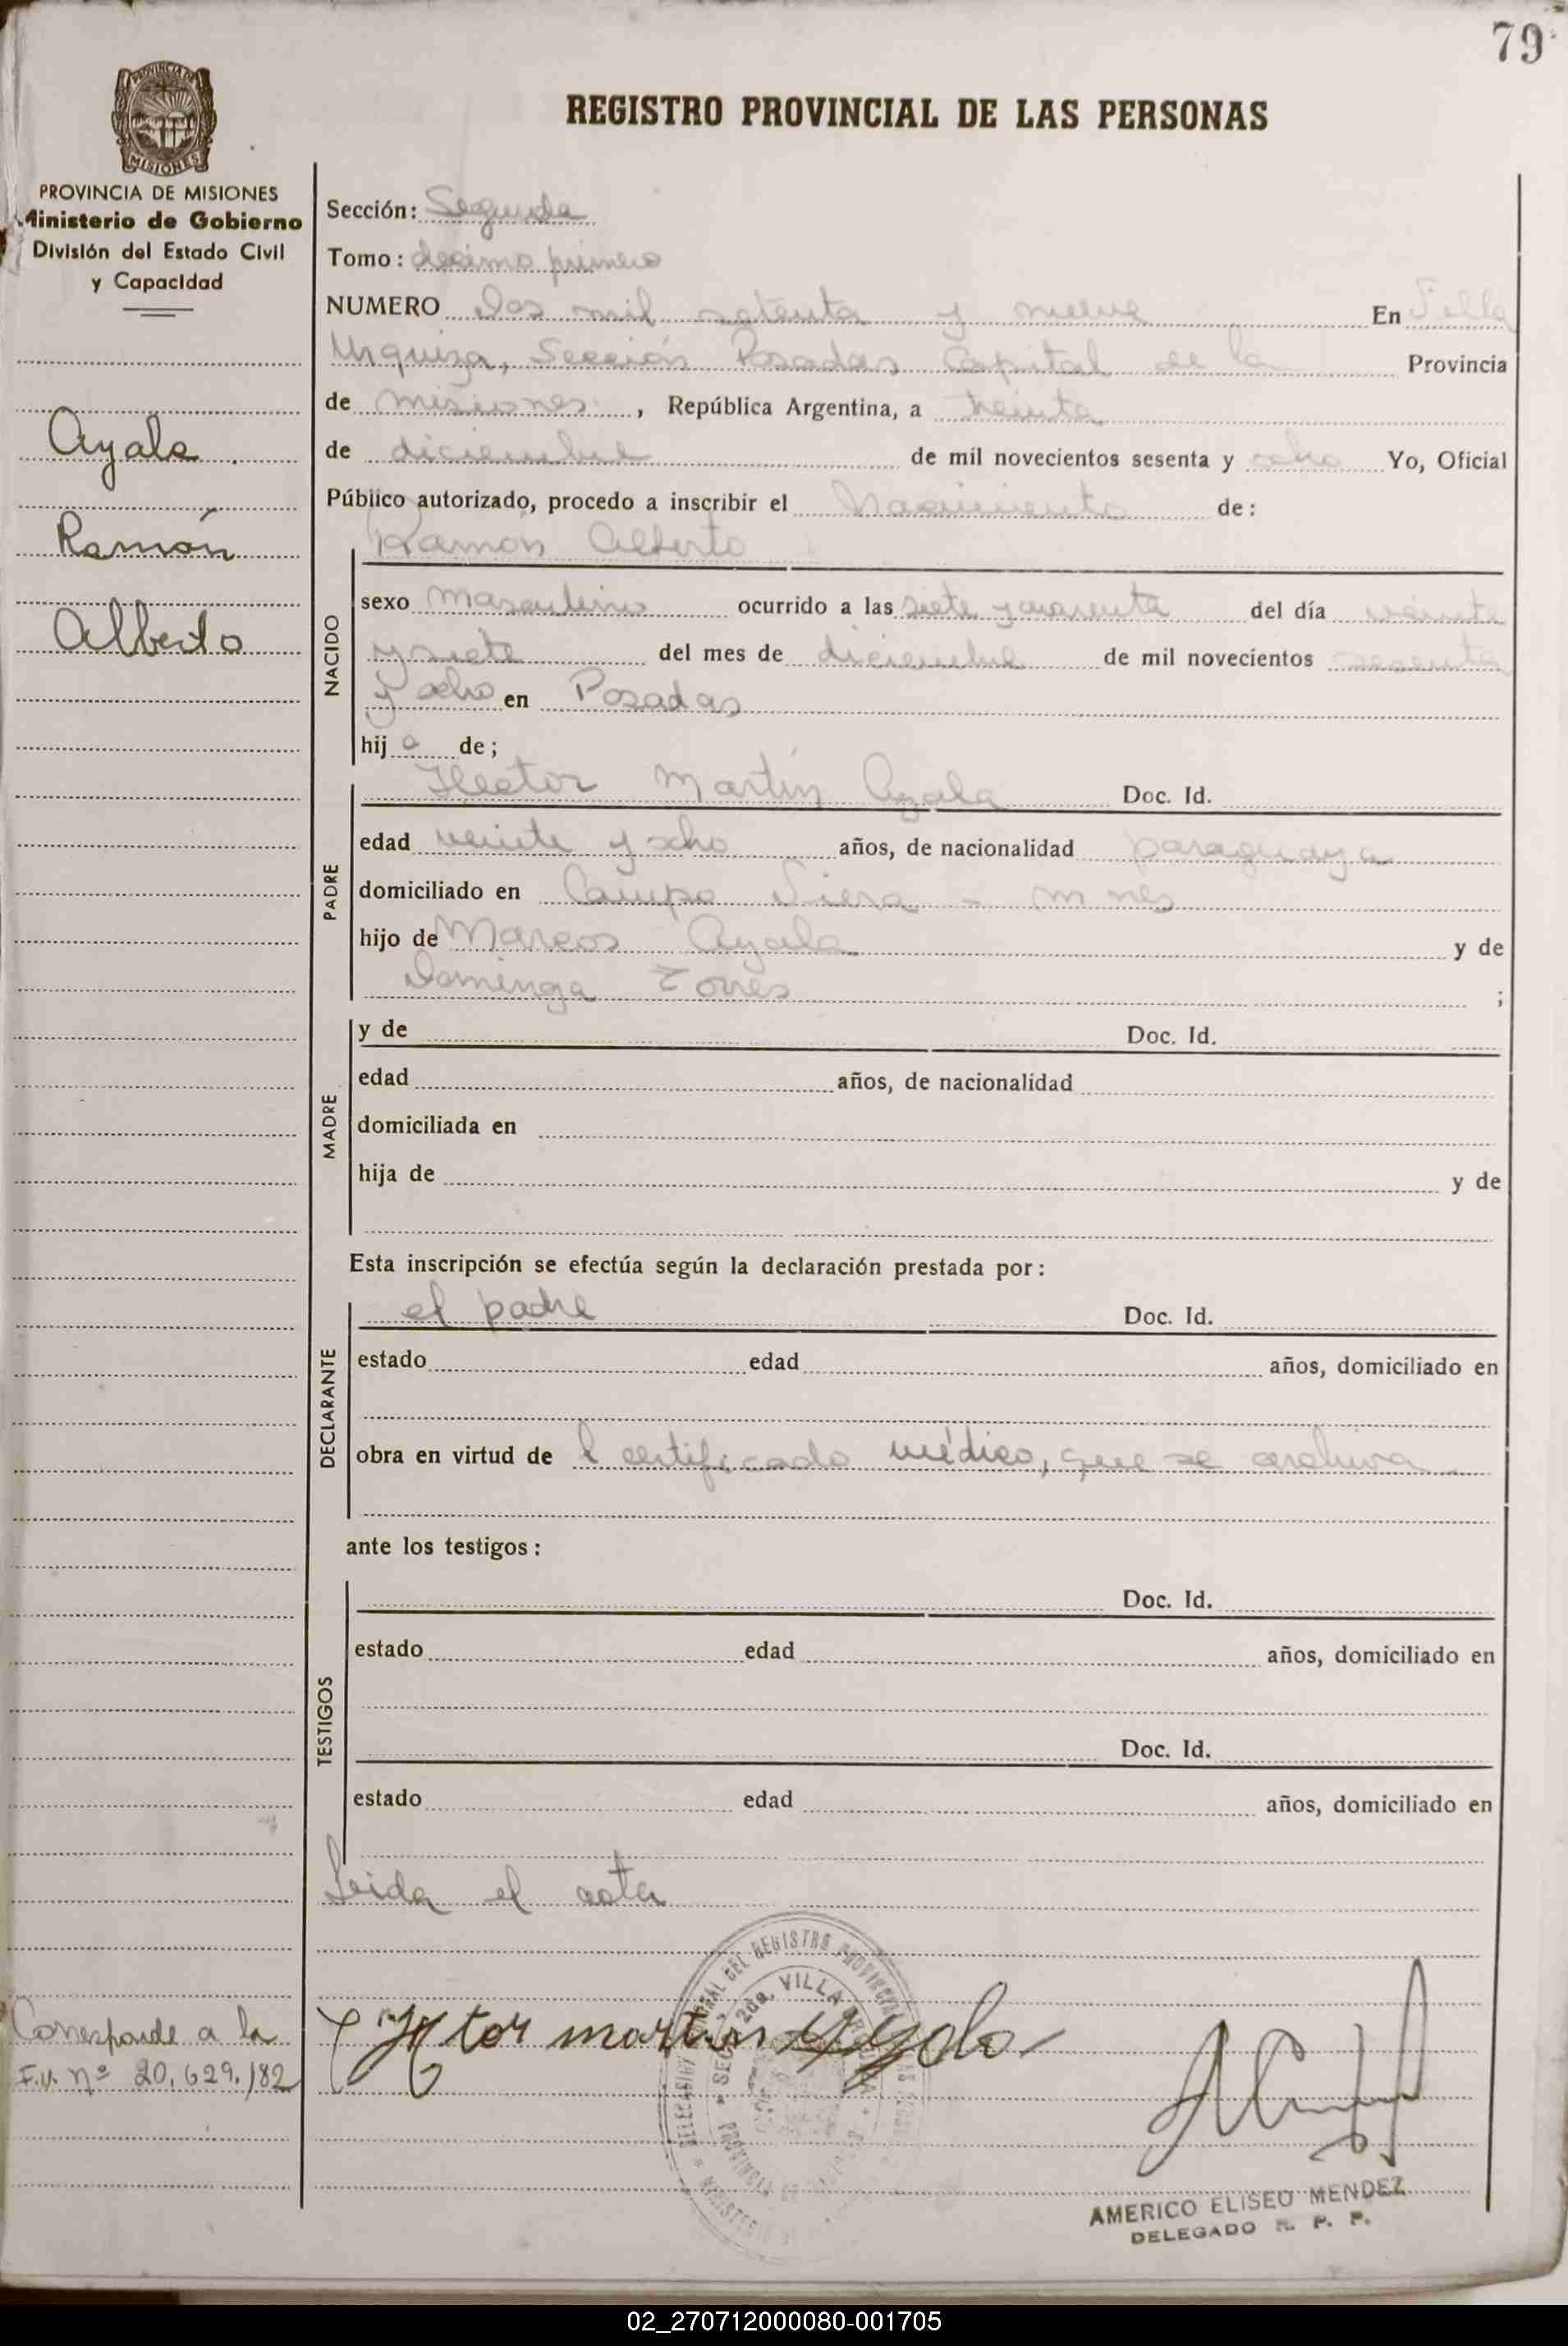 79
REGISTRO PROVINCIAL DE LAS PERSONAS
PROVINCIA DE MISIONES
Ministerio de Gobierno
División del Estado Civil
y Capacidad
Ayala
Ramón
Alberto
Sección: Segunda
Tomo: décimo primero
NUMERO Dos mil setenta y nueve En Villa
Urquiza, Sección Posadas Capital de la Provincia
de misiones, República Argentina, a treinta
de diciembre de mil novecientos sesenta y ocho Yo, Oficial
Público autorizado, procedo a inscribir el Nacimiento de:
Ramón Alberto
NACIDO
sexo masculino ocurrido a las siete y cuarenta del día veinte
y siete del mes de diciembre de mil novecientos sesenta
y ocho en Posadas
hij o de;
PADRE
Hector Martín Ayala Doc. Id.
edad veinte y ocho años, de nacionalidad paraguaya
domiciliado en Campo Viera - m nes
hijo de Marcos Ayala y de
Dominga Torres ;
MADRE
y de Doc. Id.
edad años, de nacionalidad
domiciliada en
hija de y de
Esta inscripción se efectúa según la declaración prestada por:
DECLARANTE
el padre Doc. Id.
estado edad años, domiciliado en
obra en virtud de l certificado médico, que se archiva
ante los testigos:
TESTIGOS
Doc. Id.
estado edad años, domiciliado en
Doc. Id.
estado edad años, domiciliado en
Leida el acta
Corresponde a la
F.U. nº 20.629./82
Hctor martin Ayala
SEC. 2da. VILLA URQUIZA
AMERICO ELISEO MENDEZ
DELEGADO R. P. P.
02_270712000080-001705